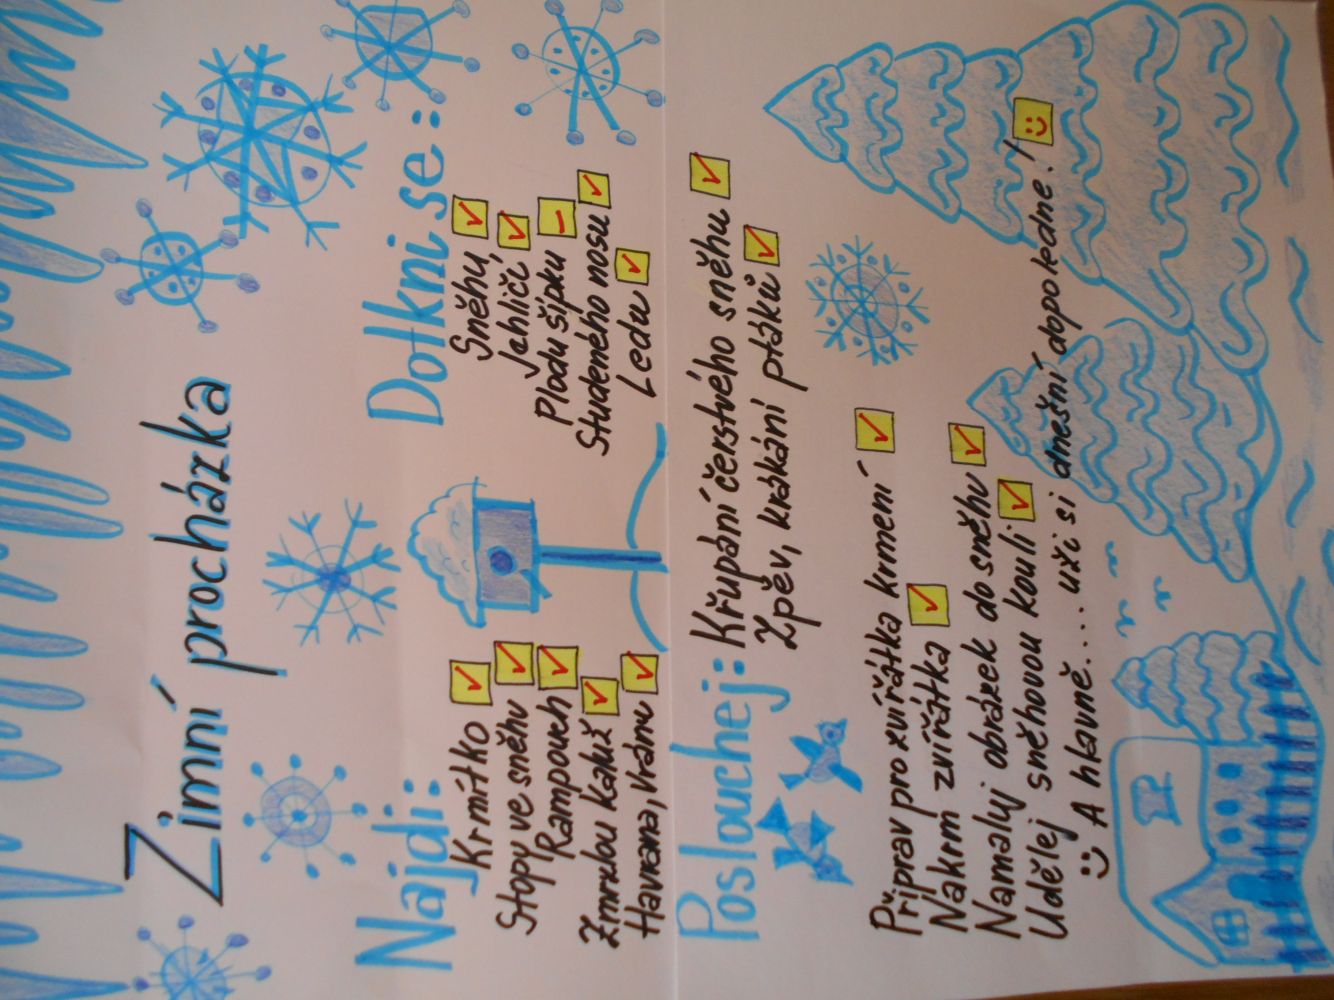 Zimní procházka
Najdi:
Krmítko
Stopy ve sněhu
Rampouch
Zmrzlou kaluž
Havrana, vránu
Dotkni se:
Sněhu
Jehličí
Plodu šípku
Studeného nosu
Ledu
Poslouchej: Křupání čerstvého sněhu
Zpěv, krákání ptáků
Připrav pro zvířátka krmení
Nakrm zvířátka
Namaluj obrázek do sněhu
Udělej sněhovou kouli
A hlavně... užij si dnešní dopoledne!